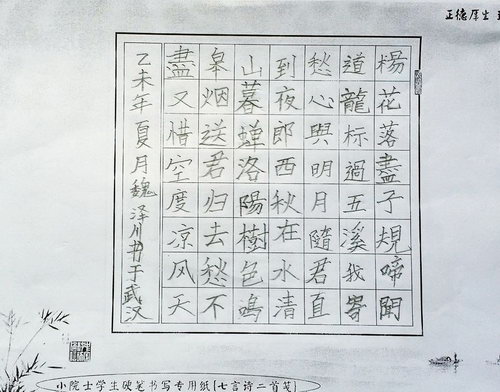 正德厚生
楊花落盡子規啼聞
道龍标過五溪我寄
愁心與明月隨君直
到夜郎西秋在水清
山暮蟬洛陽樹色鳴
皋烟送君归去愁不
盡又惜空度凉风天
乙未年夏月魏泽川书于武汉
小院士学生硬笔书写专用纸(七言诗二首笺)